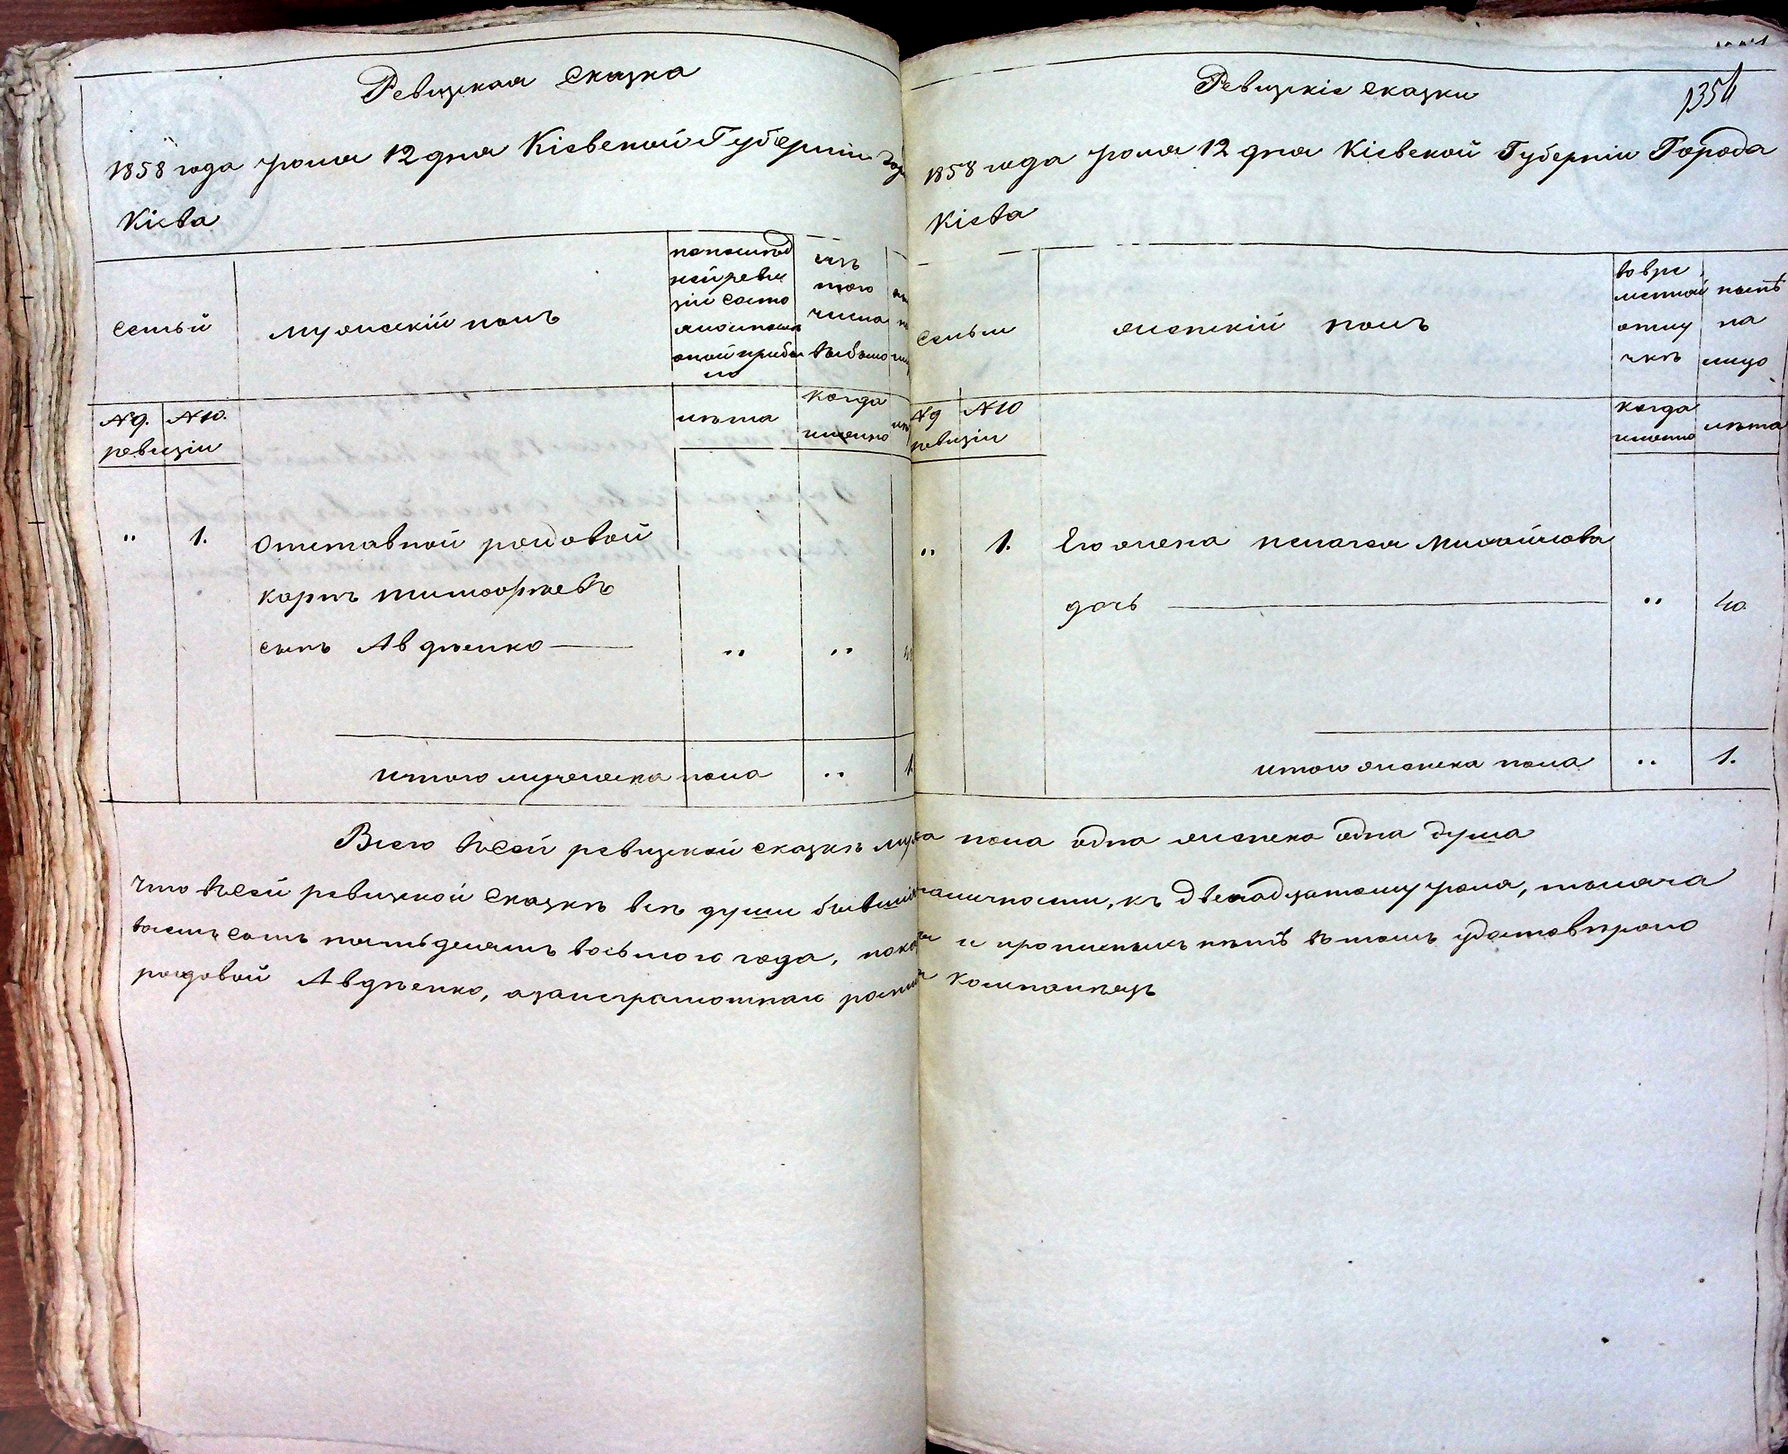 Ревизкая Сказка
1858 года Іюля 12 дня Кіевской Губерніи Гор
Кіева
семьи
мужескій полъ
по послѣд
ней реви
зіи состо
яло и посл
оной прибы
ло
изъ
того
числа
выбыло
№ 9. № 10.
ревизіи
лѣта
когда
именно
„ 1. Отставной рядовой
Карпъ Тимофѣевъ
сынъ Авдѣенко — „ „
итого мужеска пола „ 1
Ревизкіе сказки
1354
1858 года Іюля 12 дня Кіевской Губерніи Города
Кіева
семьи
женскій полъ
во вре
менной
отлу
чкѣ
нынѣ
на
лицо
№ 9 № 10
ревизіи
когда
именно
лѣта
„ 1. Его жена Пелагея Михайлова
дочь — „ 40
итого женска пола „ 1.
Всего въ сей ревизкой сказкѣ муж ка пола одна женска одна душа
Что въ сей ревизкой сказкѣ всѣ души бывшія на личности, къ двенадцатому Іюля, тысяча
восемь сотъ пятьдесятъ восьмого года, показаны и прописныхъ нѣтъ въ томъ удостовѣряю
рядовой Авдѣенко, а за неграмотнаго росписался Компанѣецъ